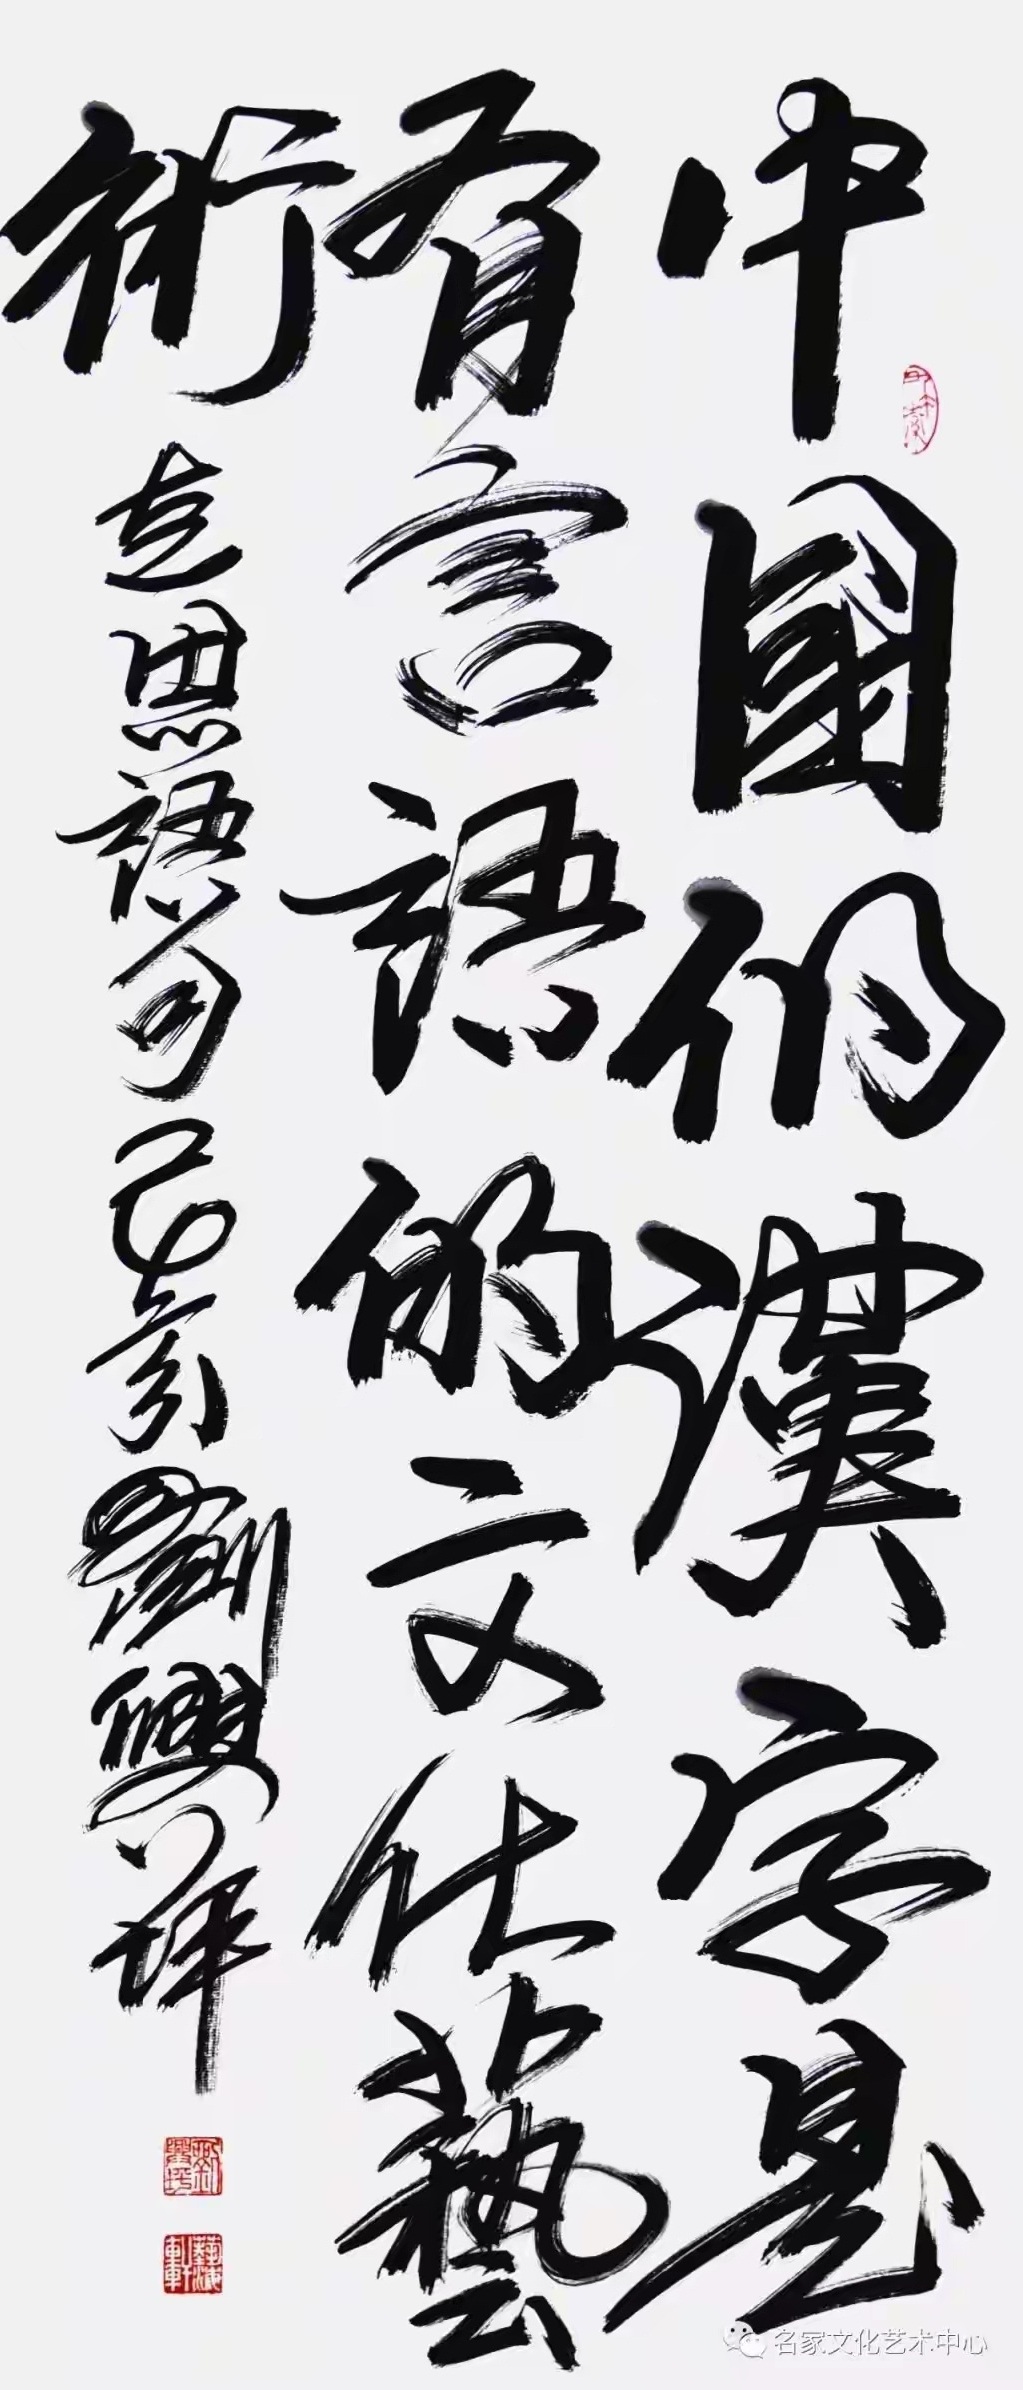 中國的漢字是
有言語的文化藝
術 思語句 己亥 劉興坪
名家文化艺术中心